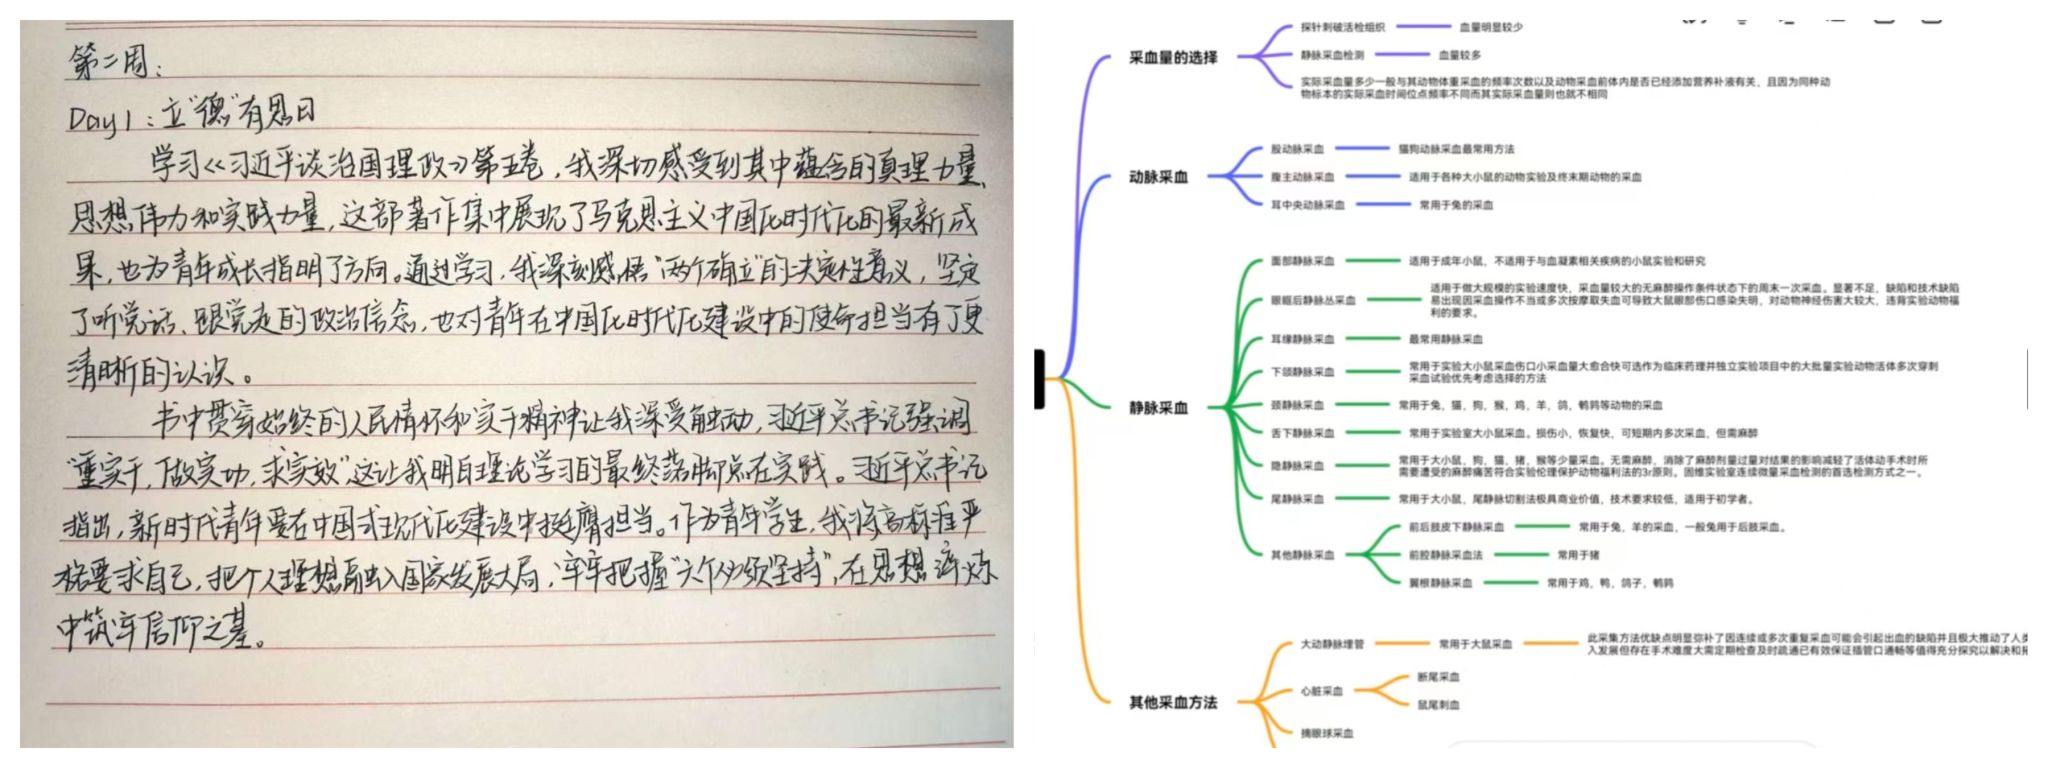 第二周：
Day1：立“德”有思日
学习《习近平谈治国理政》第五卷，我深切感受到其中蕴含的真理力量、
思想伟力和实践力量，这部著作集中展现了马克思主义中国化时代化的最新成
果，也为青年成长指明了方向。通过学习，我深刻感悟“两个确立”的决定性意义，坚定
了听党话、跟党走的政治信念，也对青年在中国化时代化建设中的使命担当有了更
清晰的认识。
书中贯穿始终的人民情怀和实干精神让我深受触动，习近平总书记强调
“重实干，做实功，求实效”，这让我明白理论学习的最终落脚点在实践。习近平总书记
指出，新时代青年要在中国式现代化建设中挺膺担当。作为青年学生，我将高标准严
格要求自己，把个人理想融入国家发展大局，牢牢把握“六个必须坚持”，在思想淬炼
中筑牢信仰之基。
采血量的选择
探针刺破活检组织
血量明显较少
静脉采血检测
血量较多
实际采血量多少一般与其动物体重采血的频率次数以及动物采血前体内是否已经添加营养补液有关，且因为同种动
物标本的实际采血时间位点频率不同而其实际采血量则也就不相同
动脉采血
股动脉采血
猫狗动脉采血最常用方法
腹主动脉采血
适用于各种大小鼠的动物实验及终末期动物的采血
耳中央动脉采血
常用于兔的采血
静脉采血
面部静脉采血
适用于成年小鼠，不适用于与血凝素相关疾病的小鼠实验和研究
眼眶后静脉丛采血
适用于做大规模的实验速度快，采血量较大的无麻醉操作条件状态下的周末一次采血。显著不足，缺陷和技术缺陷
易出现因采血操作不当或多次按摩取失血可导致大鼠眼部伤口感染失明，对动物神经伤害大较大，违背实验动物福
利的要求。
耳缘静脉采血
最常用静脉采血
下颌静脉采血
常用于实验大小鼠采血伤口小采血量大愈合快可选作为临床药理并独立实验项目中的大批量实验动物活体多次穿刺
采血试验优先考虑选择的方法
颈静脉采血
常用于兔，猫，狗，猴，鸡，羊，鸽，鹌鹑等动物的采血
舌下静脉采血
常用于实验室大小鼠采血。损伤小，恢复快，可短期内多次采血，但需麻醉
隐静脉采血
常用于大小鼠，狗，猫，猪，猴等少量采血。无需麻醉，消除了麻醉剂量过量对结果的影响减轻了活体动手术时所
需要遭受的麻醉痛苦符合实验伦理保护动物福利法的3r原则。固维实验室连续微量采血检测的首选检测方式之一。
尾静脉采血
常用于大小鼠，尾静脉切割法极具商业价值，技术要求较低，适用于初学者。
其他静脉采血
前后肢皮下静脉采血
常用于兔、羊的采血，一般兔用于后肢采血。
前腔静脉采血法
常用于猪
翼根静脉采血
常用于鸡，鸭，鸽子，鹌鹑
其他采血方法
大动静脉埋管
常用于大鼠采血
此采集方法优缺点明显弥补了因连续或多次重复采血可能会引起出血的缺陷并且极大推动了人类
入发展但存在手术难度大需定期检查及时疏通已有效保证插管口通畅等值得充分探究以解决和拓
心脏采血
断尾采血
鼠尾刺血
摘眼球采血